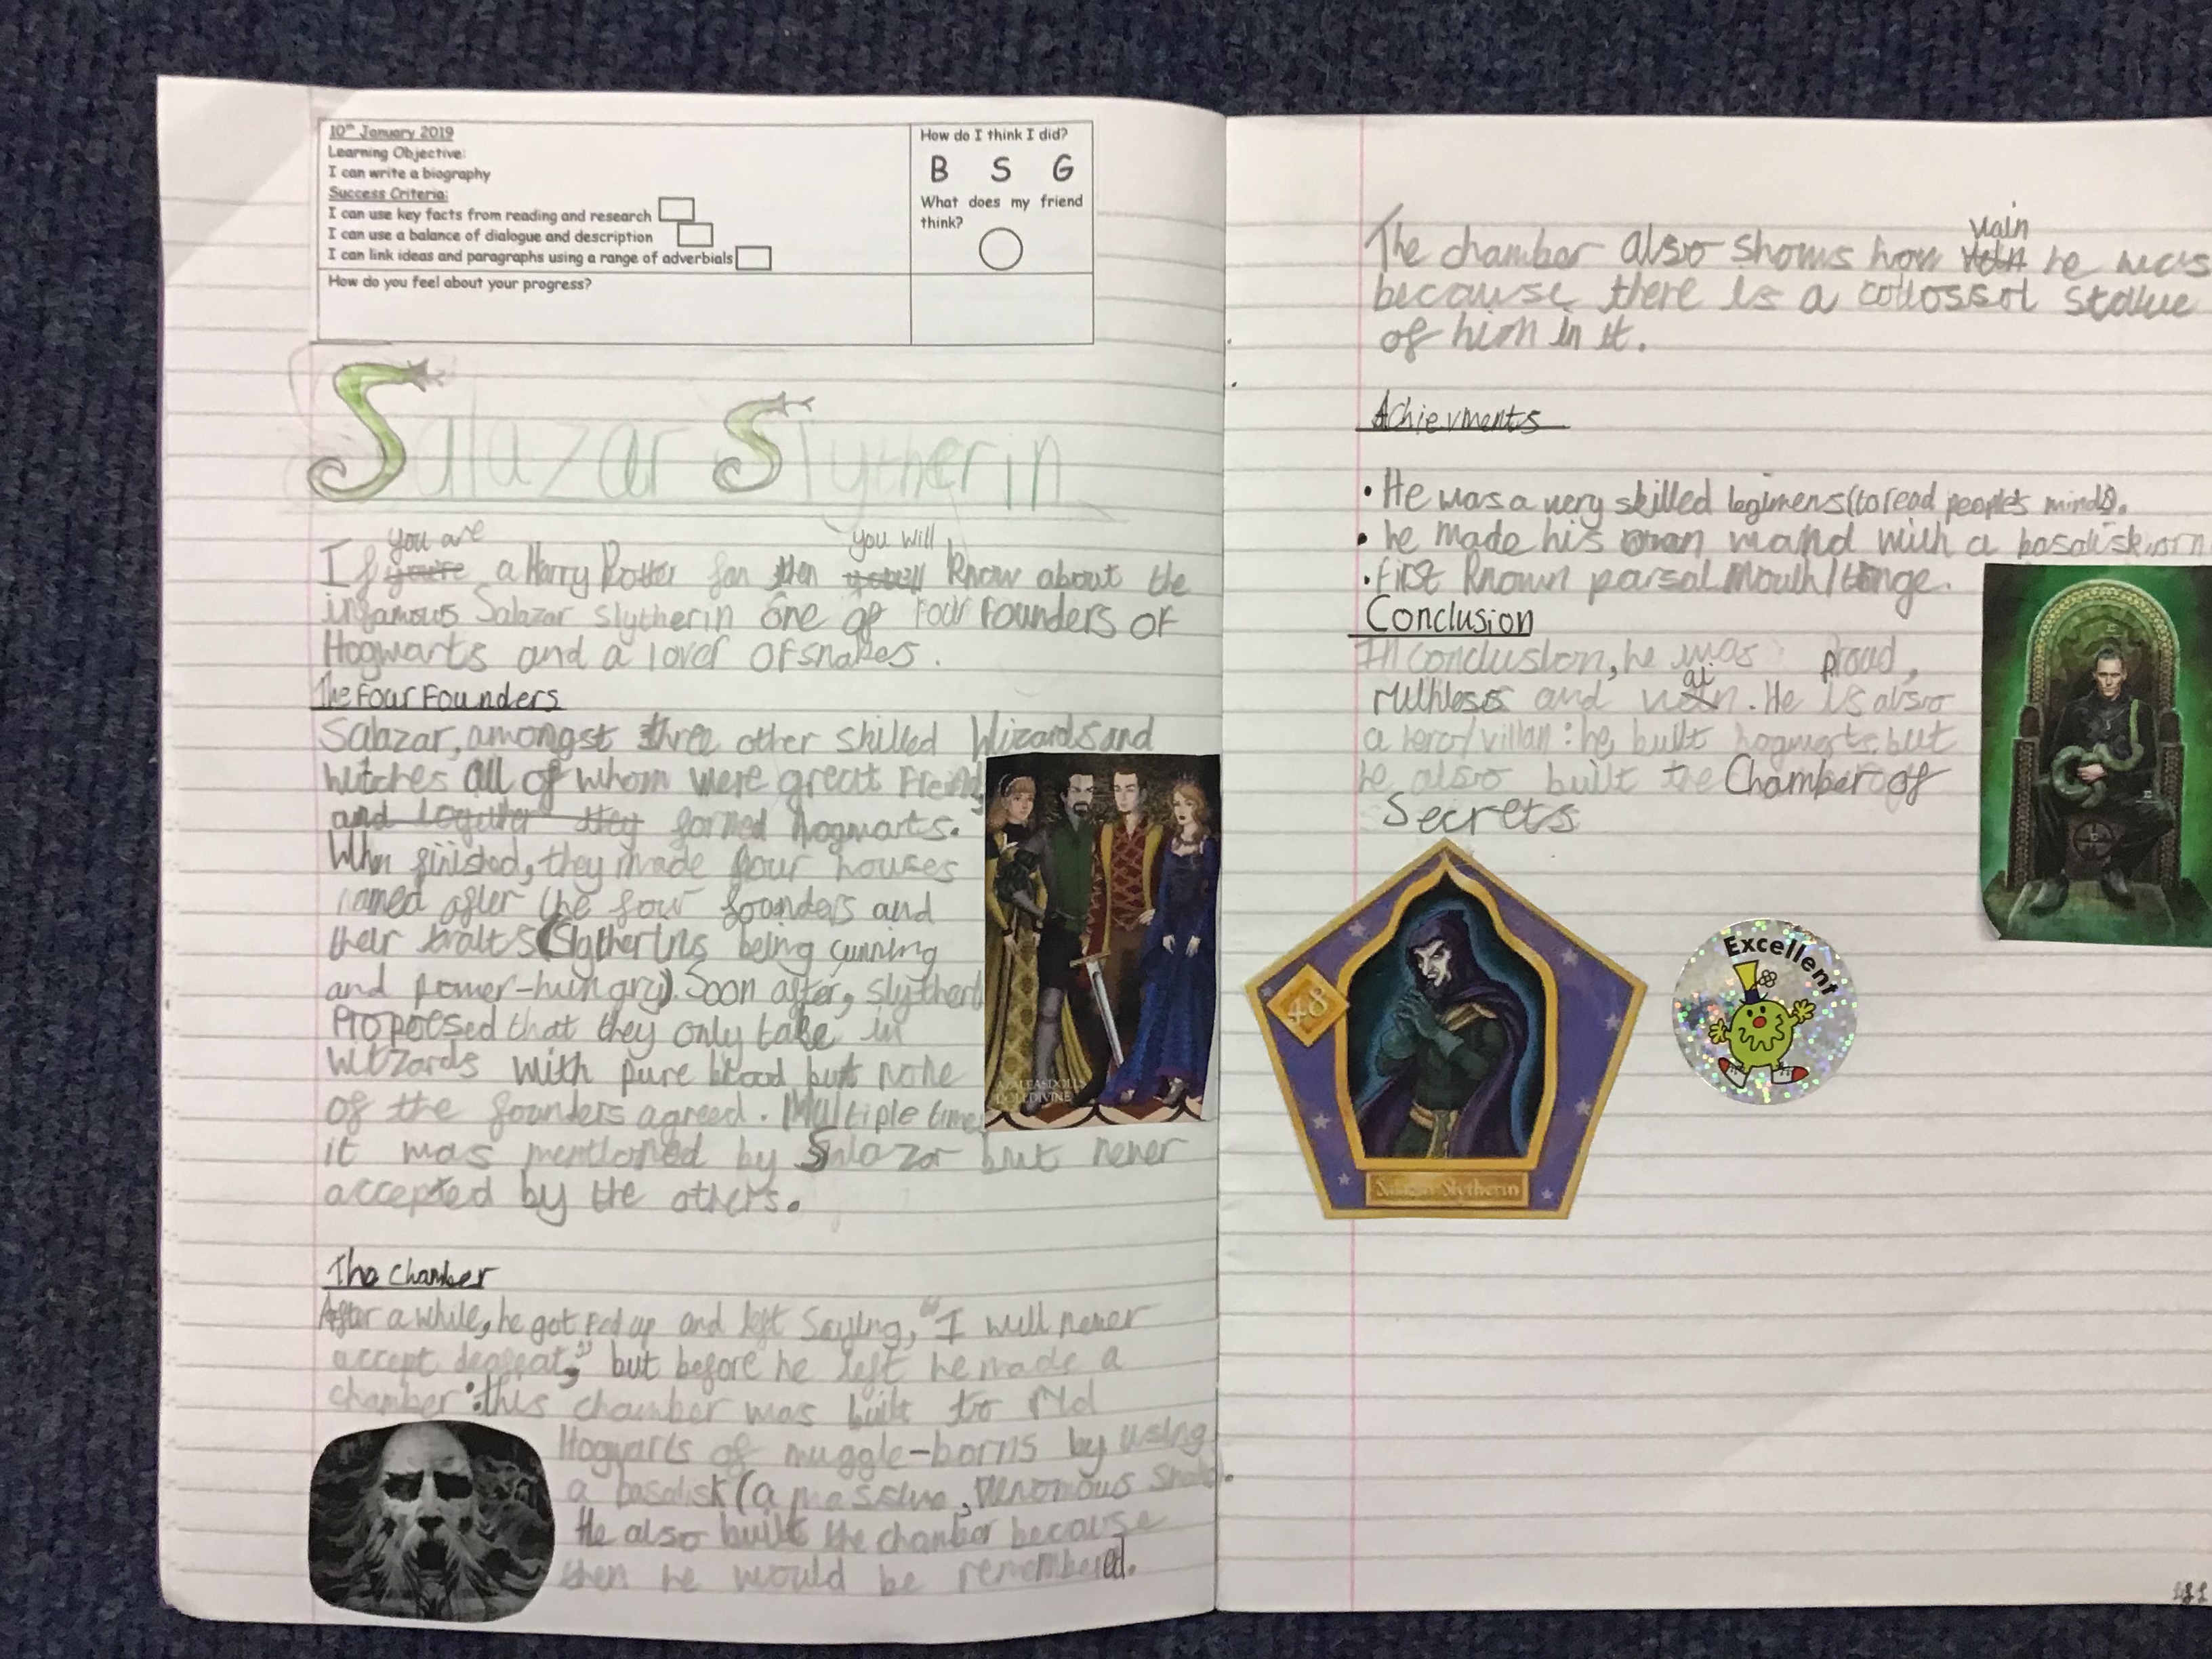 10th January 2019
Learning Objective:
I can write a biography
Success Criteria:
I can use key facts from reading and research
I can use a balance of dialogue and description
I can link ideas and paragraphs using a range of adverbials
How do you feel about your progress?
How do I think I did?
B S G
What does my friend
think?
Salazar Slytherin
you are you will
If you're a Harry Potter fan then you'll know about the
infamous Salazar Slytherin one of four founders of
Hogwarts and a lover of snakes.
The Four Founders
Salazar, amongst three other skilled Wizards and
witches all of whom were great Friends
and together they formed hogwarts.
When finished, they made four houses
named after the four founders and
their traits (Slytherins being cunning
and power-hungry). Soon after, slytherin
Propoesed that they only take in
wizards with pure blood but none
of the founders agreed. Multiple times
it was mentioned by Salazar but never
accepted by the others.
AZALEASDOLLS
DOLLDIVINE
The Chamber
After a while, he got Fed up and left Saying, "I will never
accept deafeat," but before he left he made a
chamber: this chamber was built to rid
Hogwarts of muggle-borns by using
a basalisk (a massive, venomous snake).
He also built the chamber because
then he would be remembered.
viain
The chamber also shows how he was
because there is a collossol statue
of him in it.
Achievments
• He was a very skilled legimens (to read people's minds).
• he made his own wand with a basalisk horn
• First known parsal mouth/tonge.
Conclusion
In conclusion, he was Proud,
ai
ruthless and vein. He is also
a hero/villan: he built hogwarts but
he also built the Chamber of
Secrets
48
Salazar Slytherin
Excellent